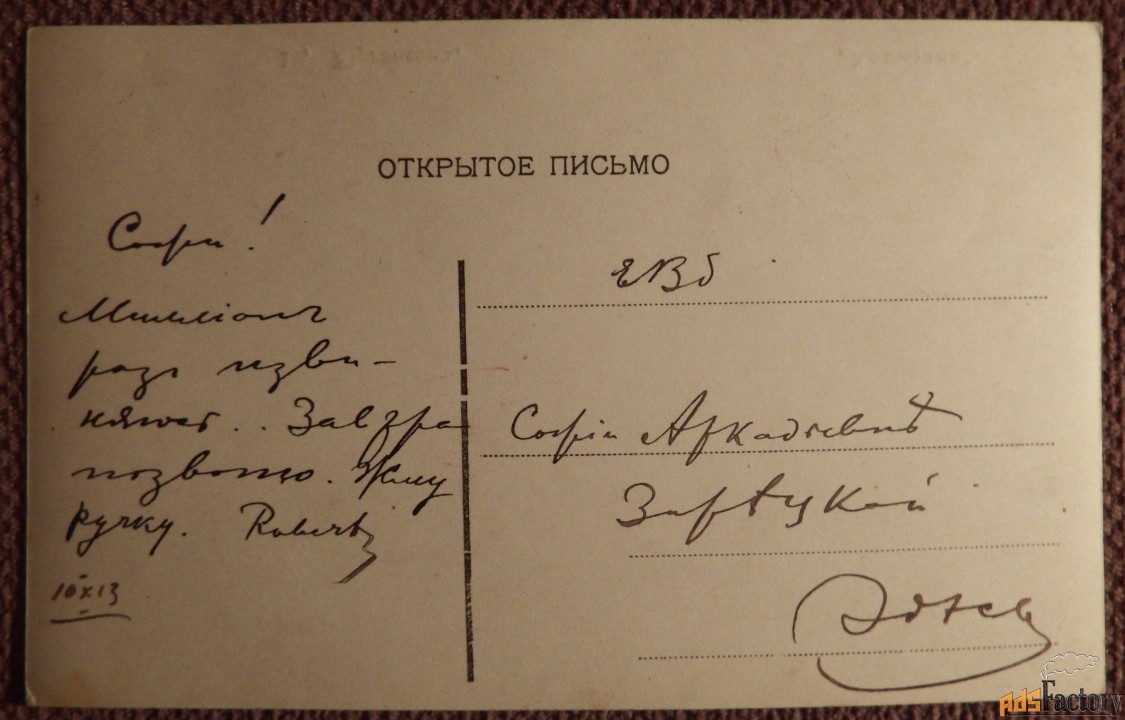 ОТКРЫТОЕ ПИСЬМО
Софи!
Миллiонъ
разъ изви-
няюсь.. Завтра
позвоню. Жму
ручку. Robert
10 X 13
ЕВБ
Софiи Аркадьевнѣ
Зарѣцкой
Здѣсь
AdsFactory